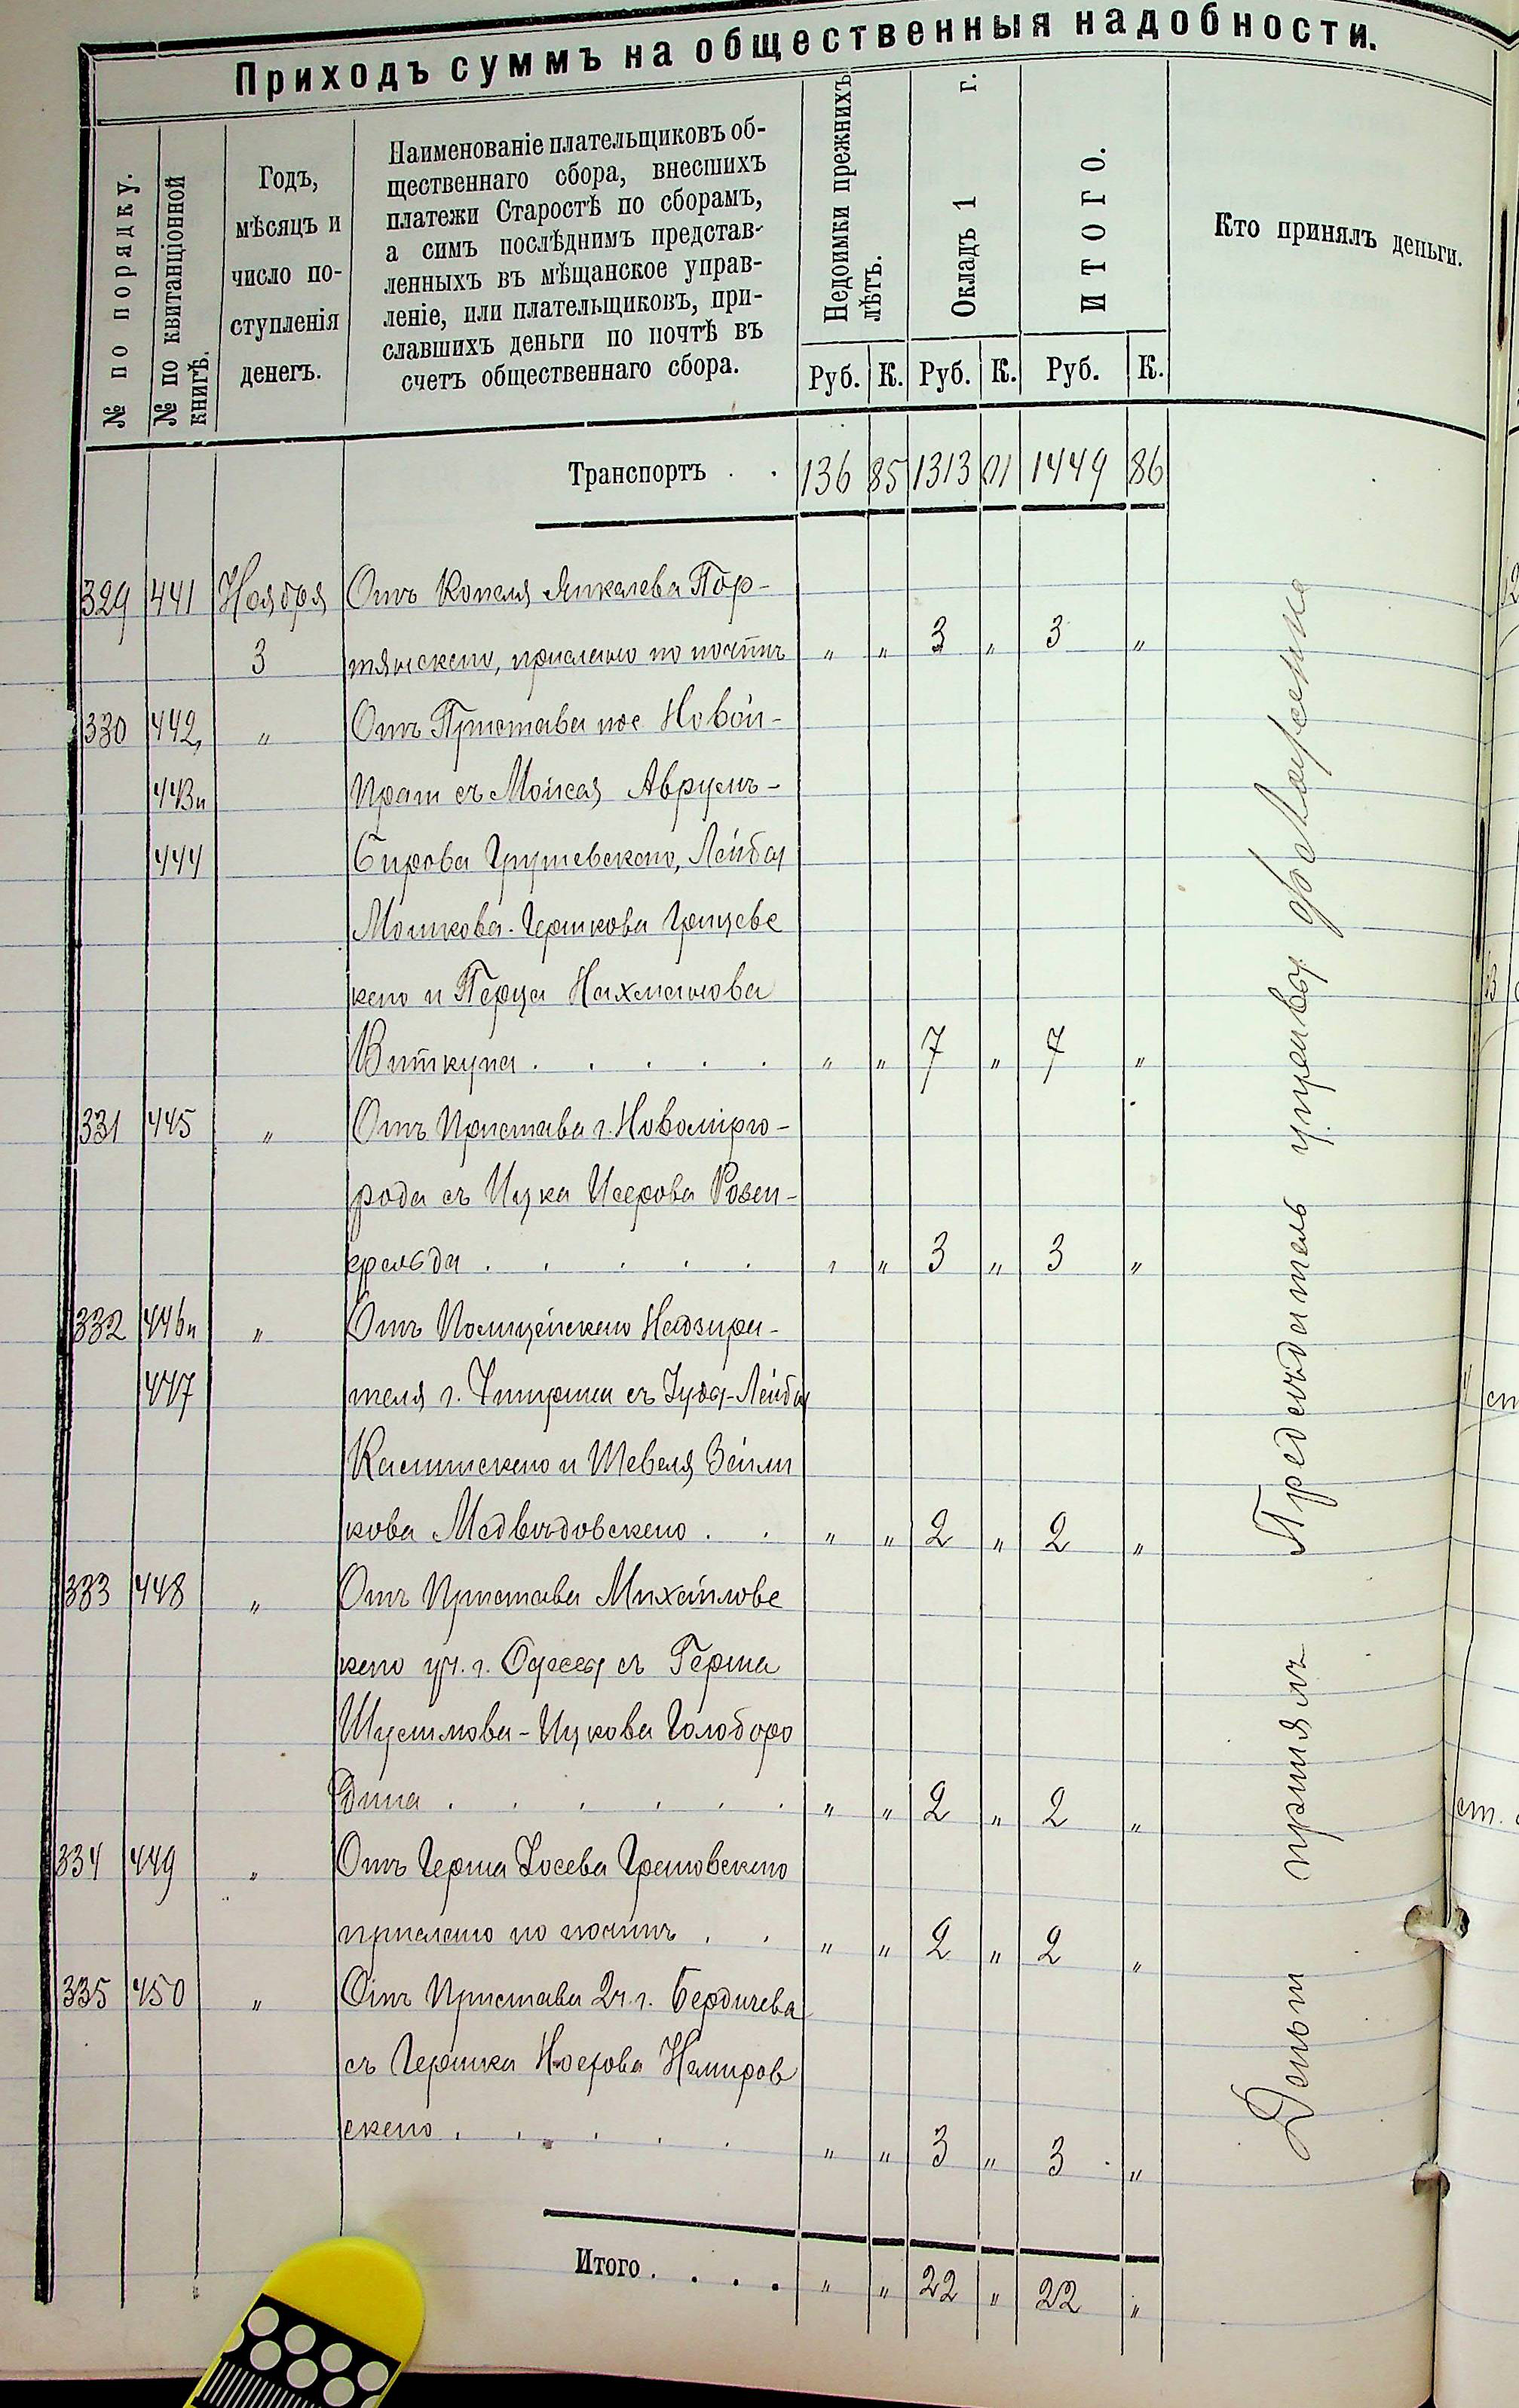 Приходъ суммъ на общественныя надобности.
№ по порядку.
№ по квитанціонной книгѣ.
Годъ,
мѣсяцъ и
число по-
ступленія
денегъ.
Наименованіе плательщиковъ об-
щественнаго сбора, внесшихъ
платежи Старостѣ по сборамъ,
а симъ послѣднимъ представ-
ленныхъ въ мѣщанское управ-
леніе, или плательщиковъ, при-
славшихъ деньги по почтѣ въ
счетъ общественнаго сбора.
Недоимки прежнихъ лѣтъ.
Окладъ 1 г.
ИТОГО.
Кто принялъ деньги.
Руб. К. Руб. К. Руб. К.
Транспортъ . . 136 85 1313 01 1449 86
329 441 Ноября Отъ Копеля Янкелева Пор-
3 тянскаго, прислано по почтѣ " " 3 " 3 "
330 442, " Отъ Пристава пос Новой-
443 и Праги съ Мойсея Аврумъ-
444 Сирова Грушевскаго, Лейбы
Мошкова-Гершкова Грищевс
каго и Перца Нахманова
Виткупа . . . . . " " 7 " 7 "
331 445 " Отъ Пристава г. Новомирго-
рода съ Ицка Исерова Розен-
фельда . . . . . " " 3 " 3 "
332 446 и " Отъ Полицейскаго Надзира-
447 теля г. Чигирина съ Іуды-Лейбы
и Шевеля Зейли
кова Медвѣдовскаго . . " " 2 " 2 "
333 448 " Отъ Пристава Михайловс
каго уч. г. Одессы съ Герша
Шулимова-Ицкова Голоборо
дина . . . . . . " " 2 " 2 "
334 449 " Отъ Герша Іосева
прислано по почтѣ . . " " 2 " 2 "
335 450 " Отъ Пристава 2 ч. г. Бердичева
съ Гершка Носрова Немиров
скаго . . . . . " " 3 " 3 "
Итого . . . . " " 22 " 22 "
Деньги принялъ Предсѣдатель управы